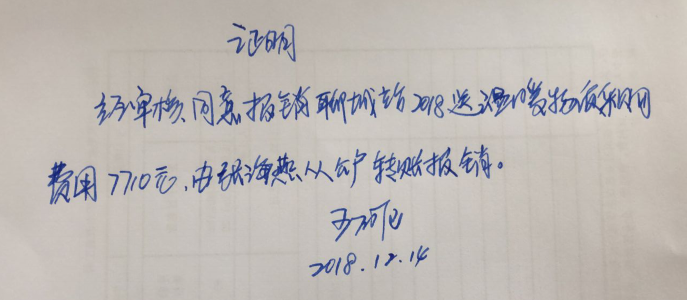 证明
经审核,同意报销聊城站2018送温暖物资采购
费用7710元,由张海燕从公户转账报销。
2018.12.14